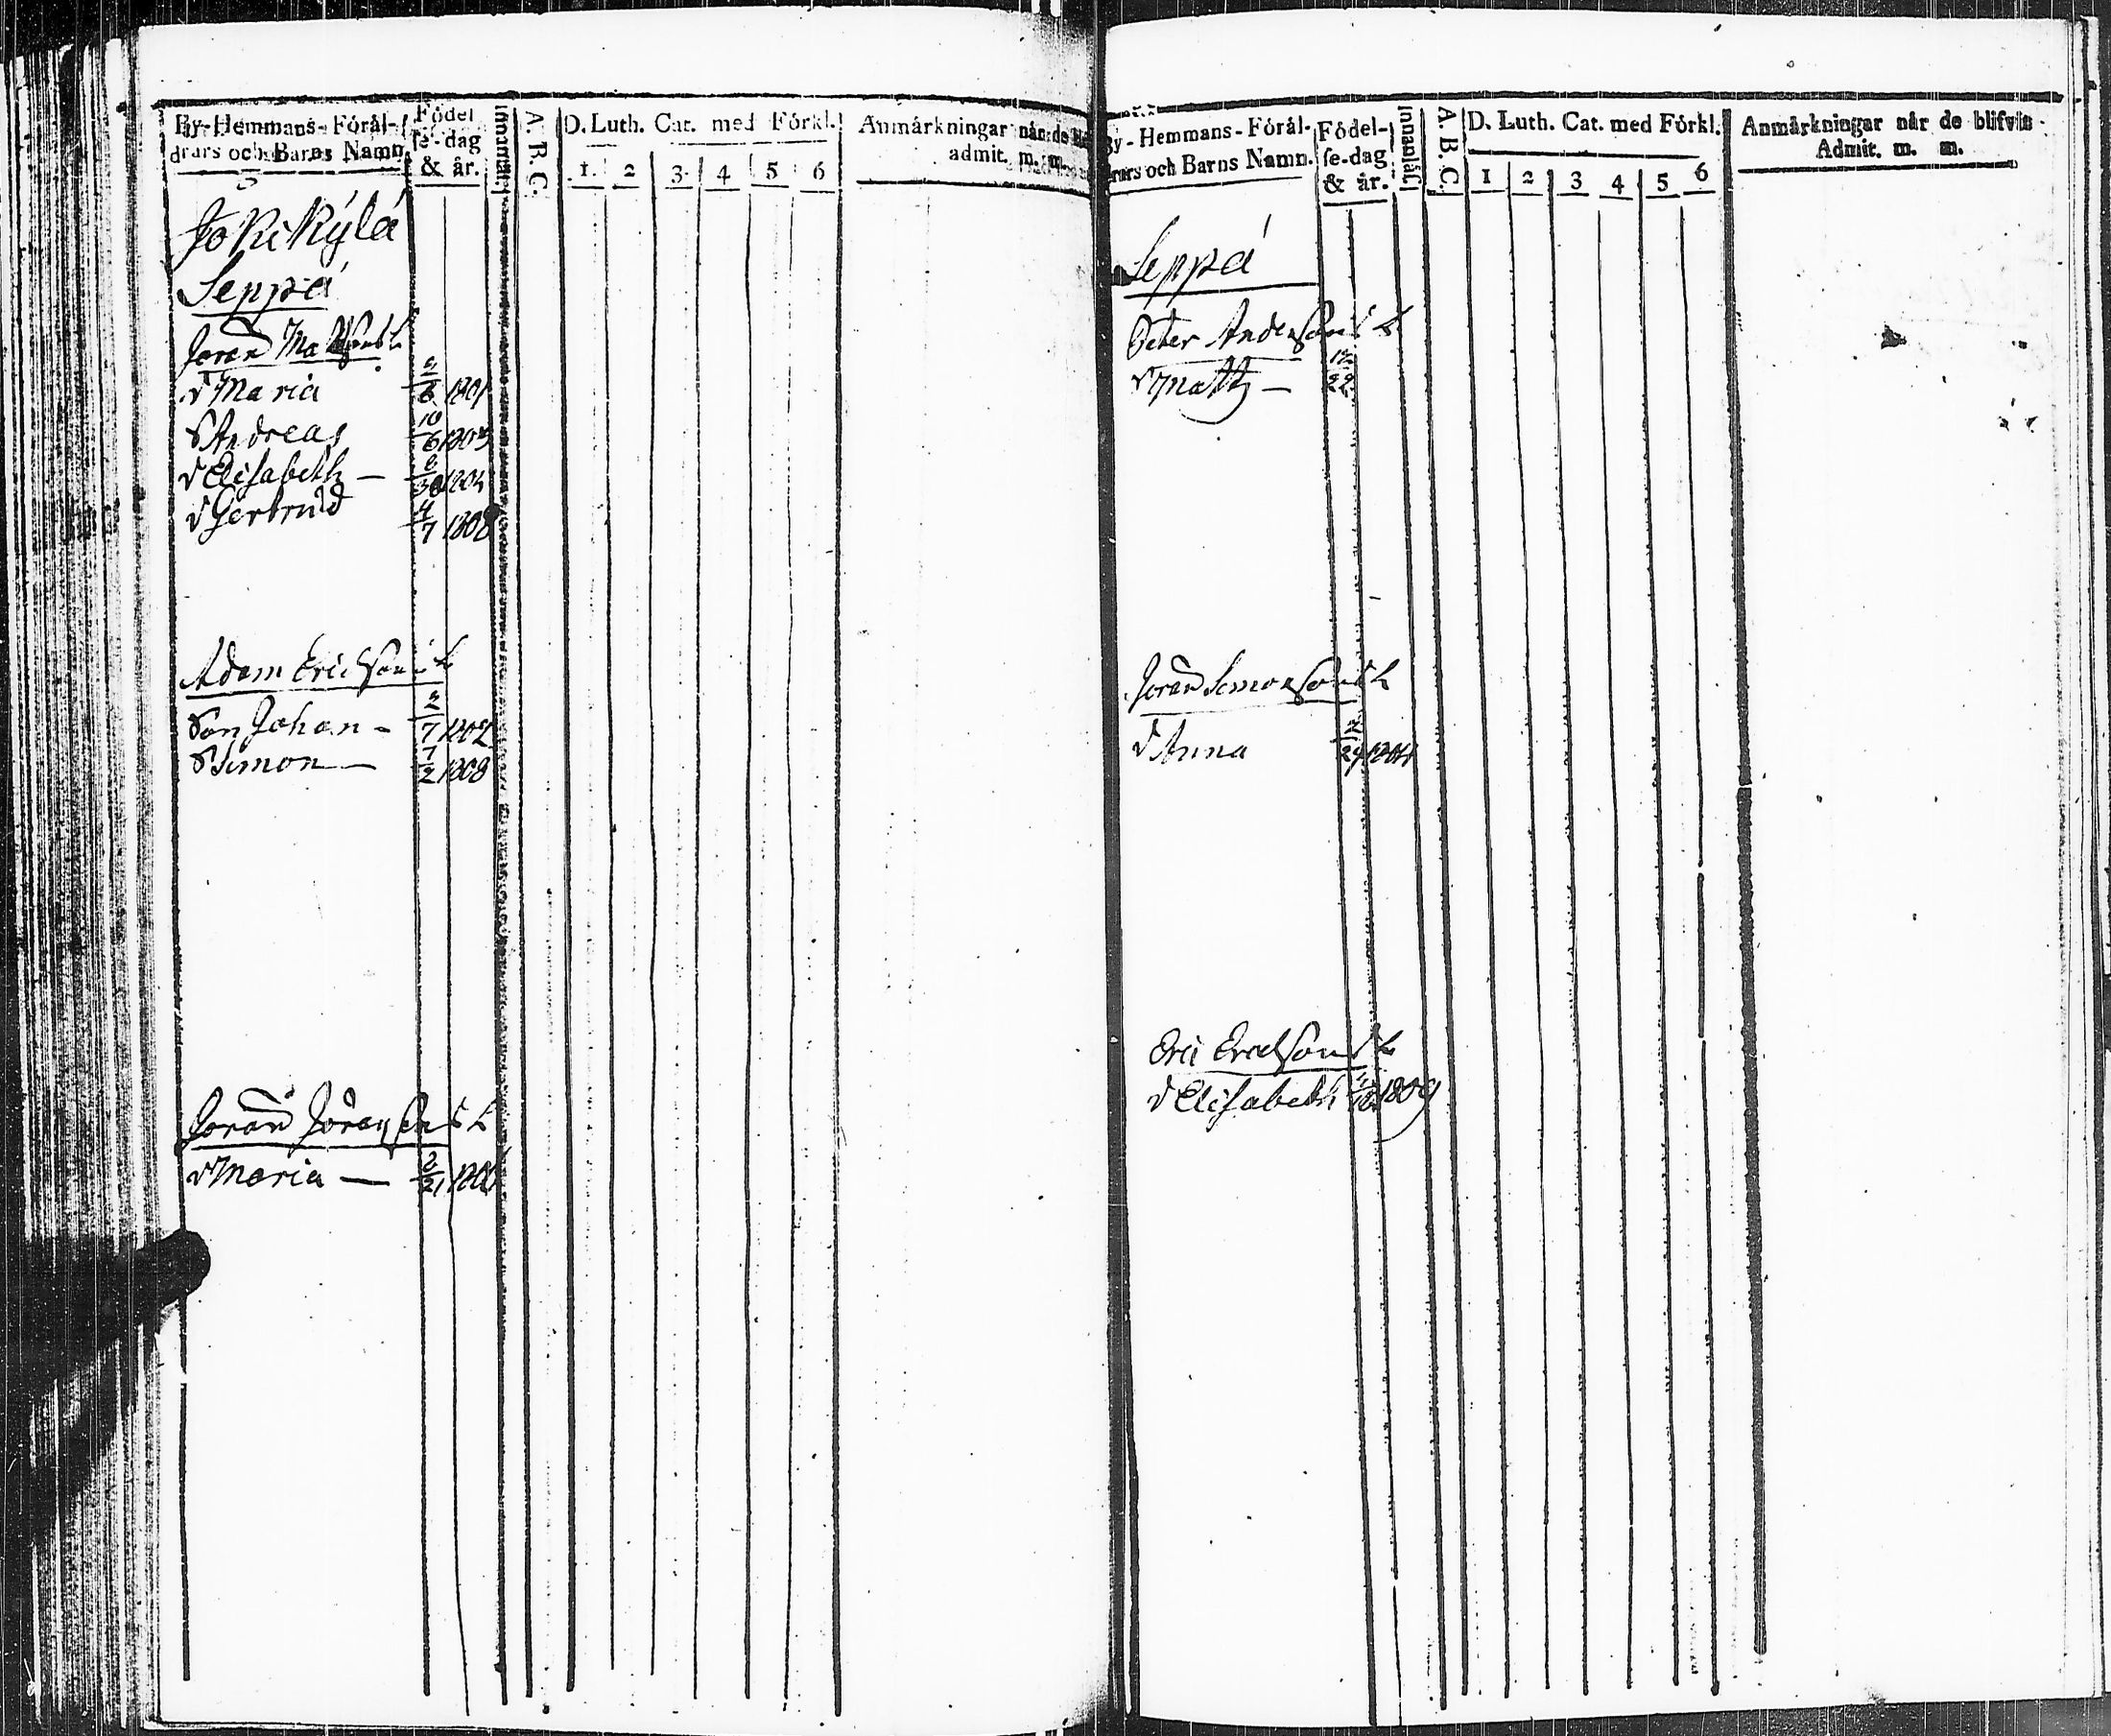 By-Hemmans-Förål-
drars och Barns Namn.
Födel
se-dag
& år.
Innanläs.
A. B. C.
D. Luth. Cat. med Förkl.
1. 2 3. 4 5 6
Anmårkningar når de
admit. m. m.
Jokikylä
Seppä
Joran Mattson
d Maria 6 1801
S Andreas 10/6 1803
d Elisabeth —
d Gertrud 4/7 1808
Adam Ericson
Son Johan - 7 1802
S Simon — 7/2 1808
Joran Joranson
d Maria — 2/21
By-Hemmans-Förål-
drars och Barns Namn.
Födel-
se-dag
& år.
Innanläs.
A. B. C.
D. Luth. Cat. med Förkl.
1 2 3 4 5 6
Anmårkningar når de blifvit
Admit. m. m.
Seppä
Peter Anderson
Matts — 12/22
Joran Simonson
d Anna 1804
Eric Ericson
d Elisabeth 1809